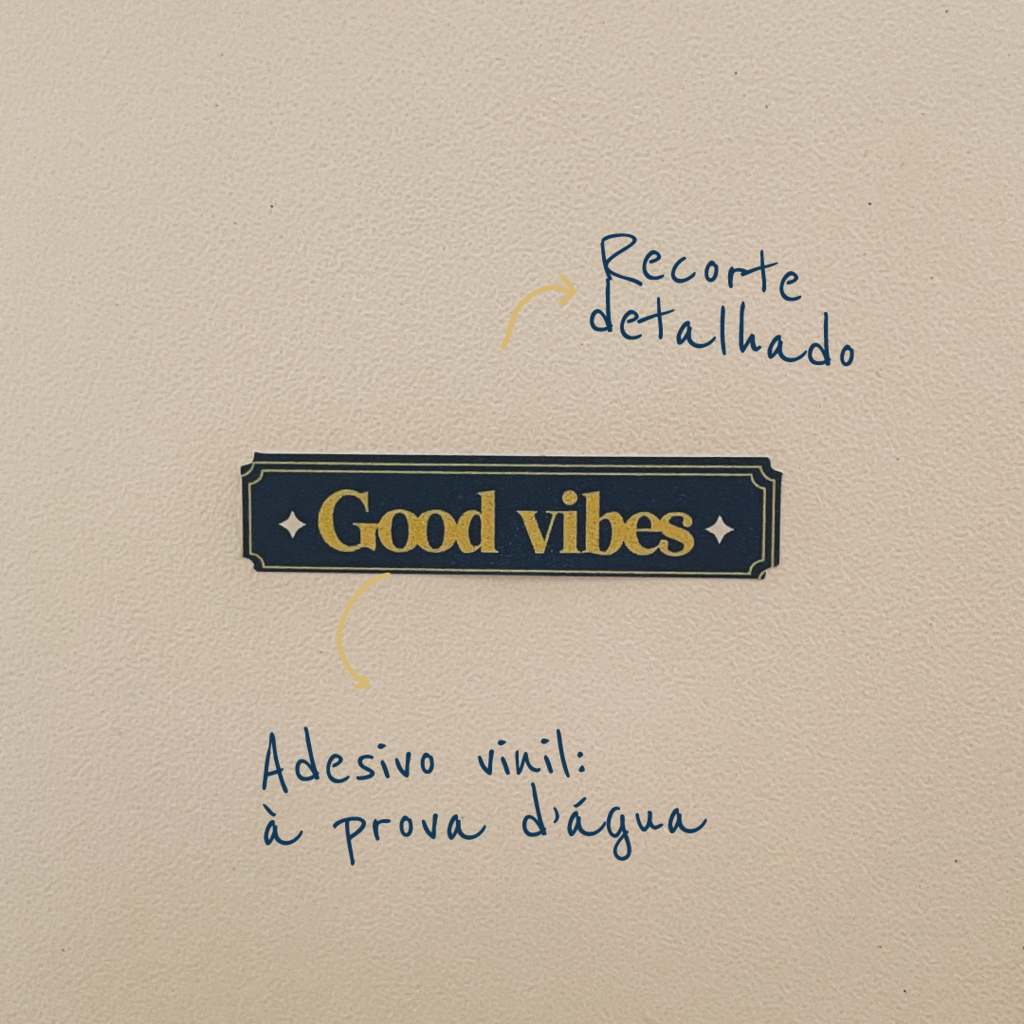 Recorte
detalhado
Good vibes
Adesivo vinil:
à prova d'água